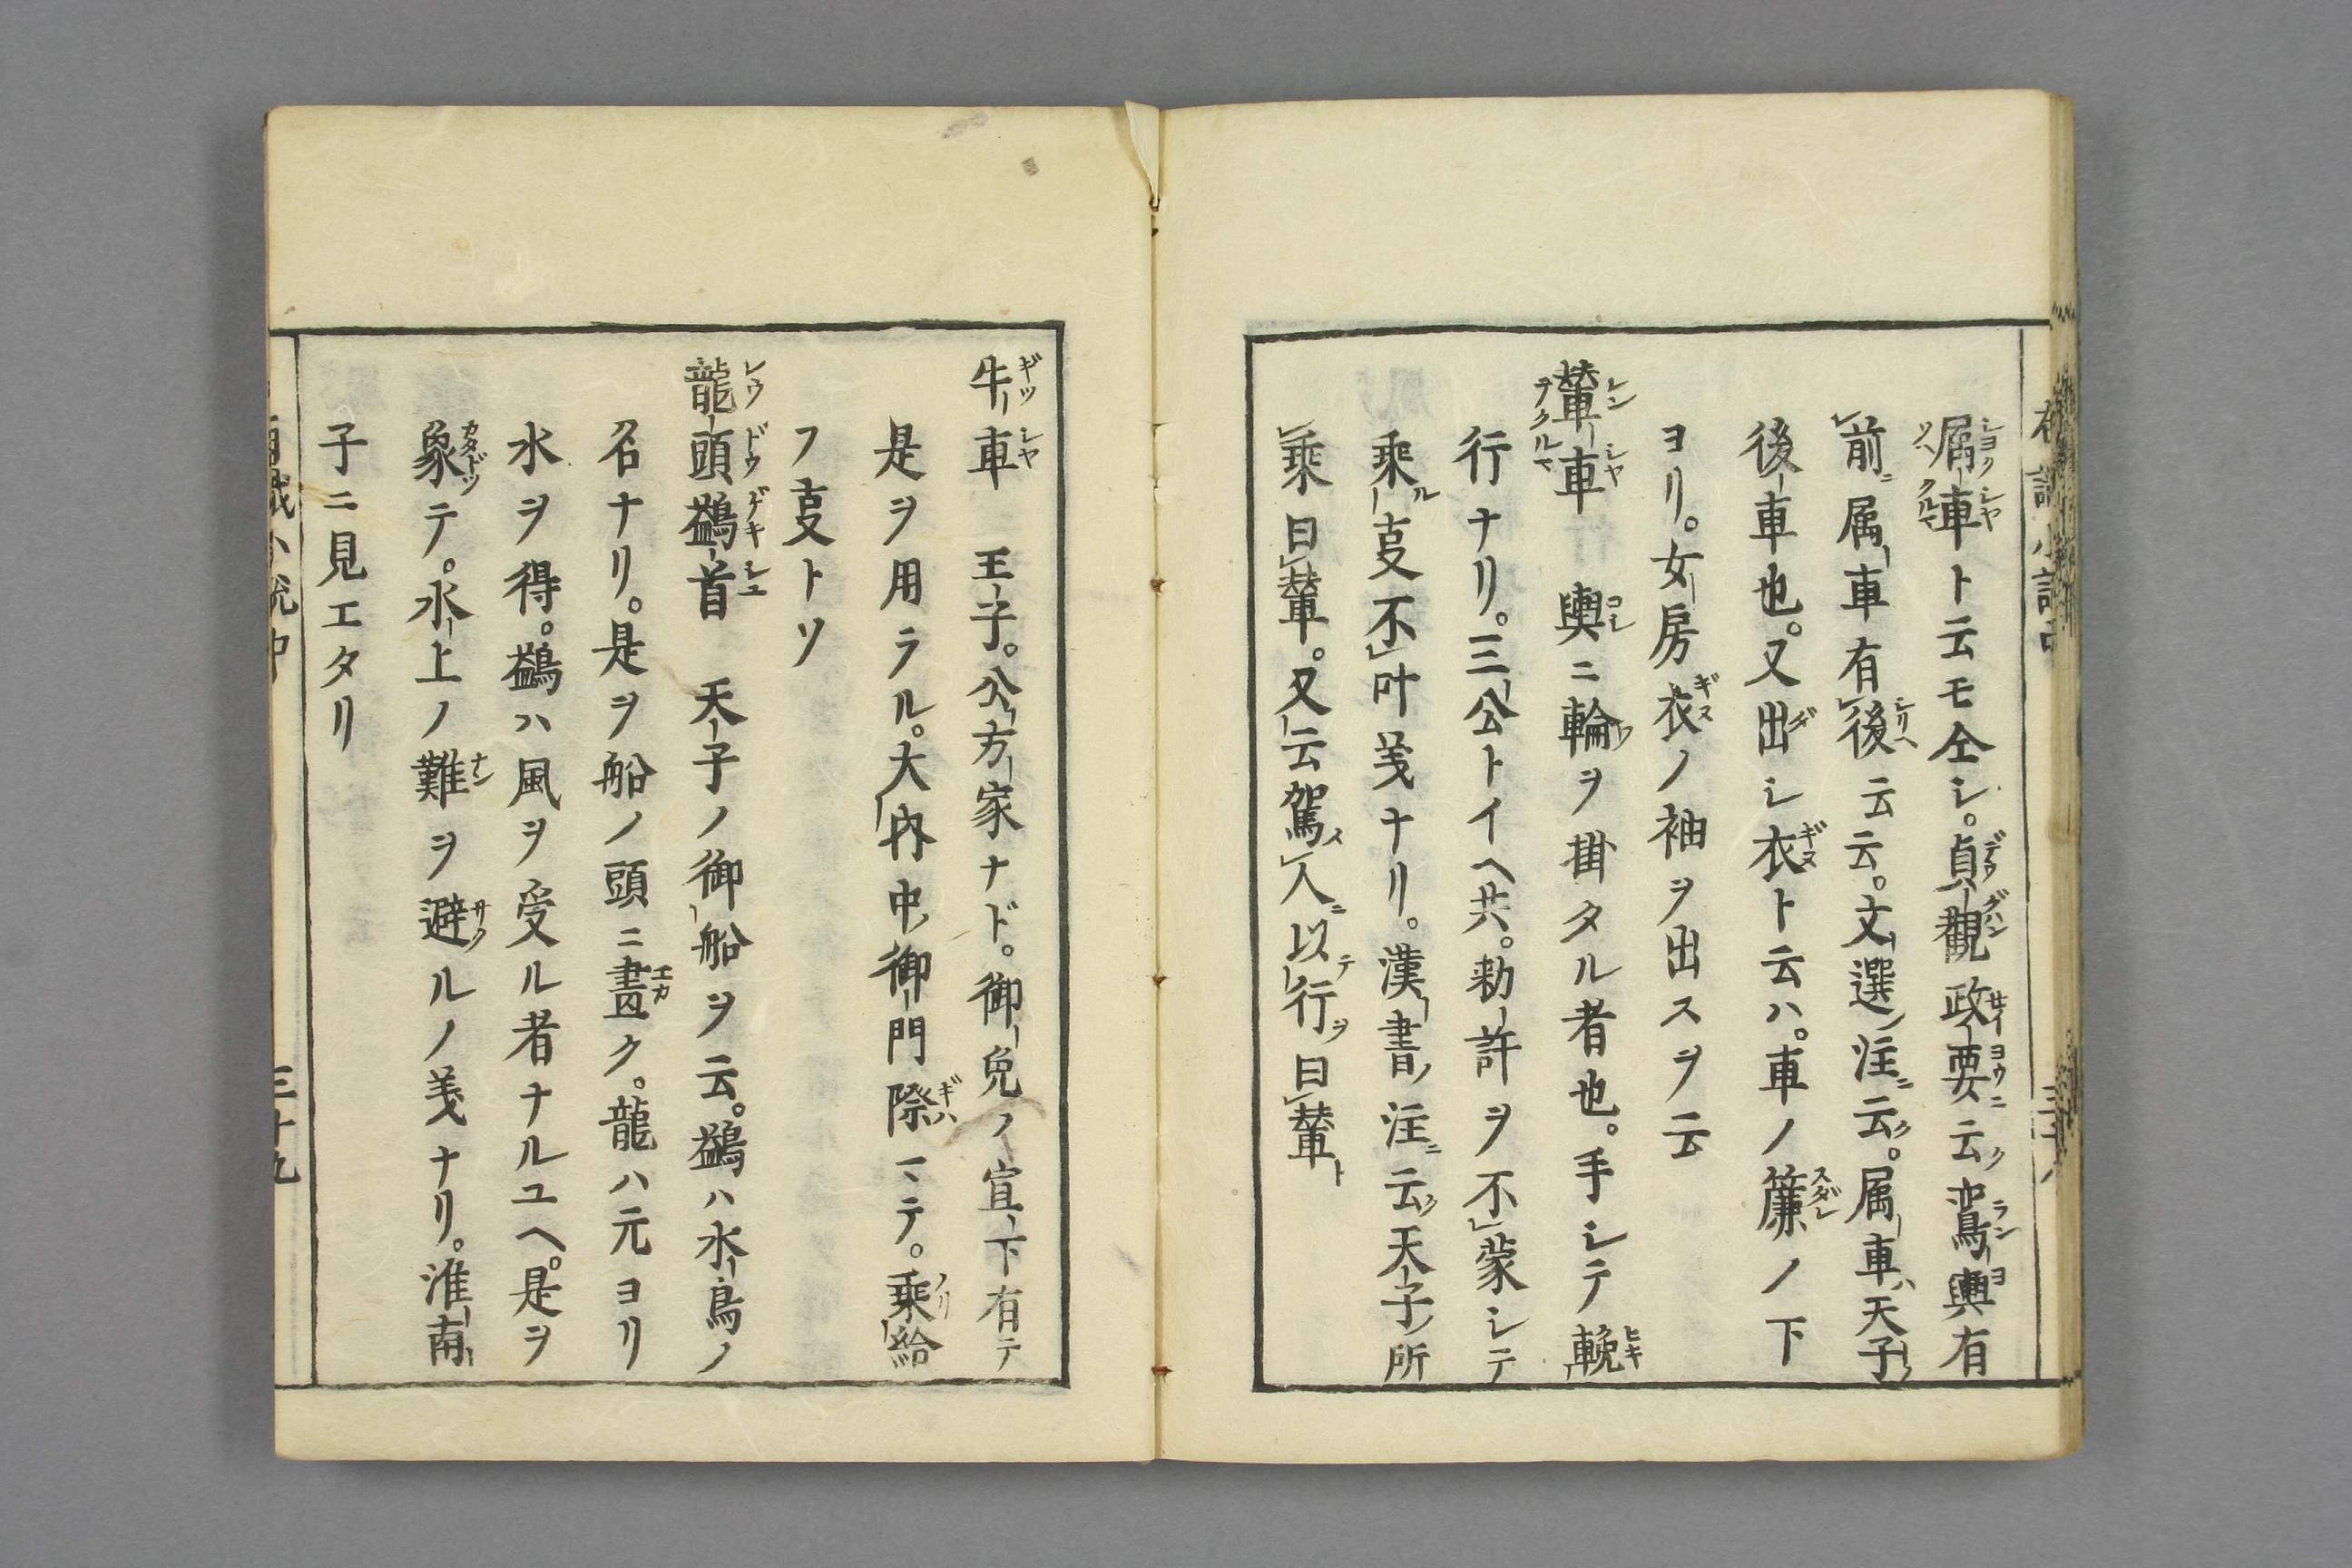 属車ト云モ仝シ。貞觀政要ニ云ク鸞輿有
前ニ属車有後云云。文選ノ注ニ云ク。属車ハ天子ノ
後車也。又出シ衣ト云ハ。車ノ簾ノ下
ヨリ。女房衣ノ袖ヲ出スヲ云
輦車　輿ニ輪ヲ掛タル者也。手シテ輓
行ナリ。三公トイヘ共。勅許ヲ不蒙シテ
乘ル叓不叶義ナリ。漢書ノ注ニ云ク天子ノ所
乘曰輦。又云駕ス人ニ以テ行ヲ曰輦ト
牛車　王子。公方家ナド。御免ノ宣下有テ
是ヲ用ラル。大内中ノ御門際ニテ。乘給
フ叓トソ
龍頭鷁首　天子ノ御船ヲ云。鷁ハ水鳥ノ
名ナリ。是ヲ船ノ頭ニ畫ク。龍ハ元ヨリ
水ヲ得。鷁ハ風ヲ受ル者ナルユヘ。是ヲ
象テ。水上ノ難ヲ避ルノ義ナリ。淮南
子ニ見エタリ
三十九